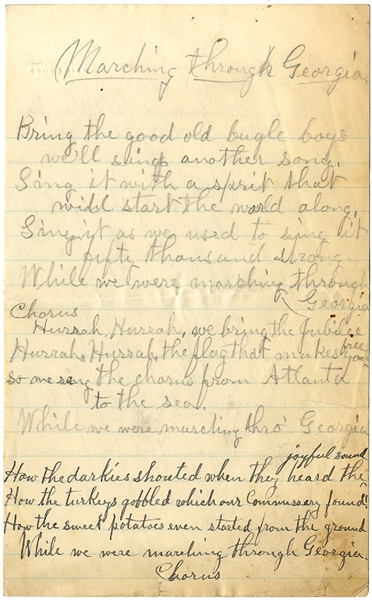 Marching through Georgia.
Bring the good old bugle boys
we'll sing another song,
Sing it with a spirit that
will start the world along,
Sing it as we used to sing it
fifty thousand strong
While we were marching through
Georgia
Chorus
Hurrah, Hurrah, we bring the Jubilee
Hurrah, Hurrah, the flag that makes you free
so we sang the chorus from Atlanta
to the sea.
While we were marching thro' Georgia
How the darkies shouted when they heard the joyful sound
How the turkeys gobbled which our Commissary found!
How the sweet potatoes even started from the ground
While we were marching through Georgia.
Chorus